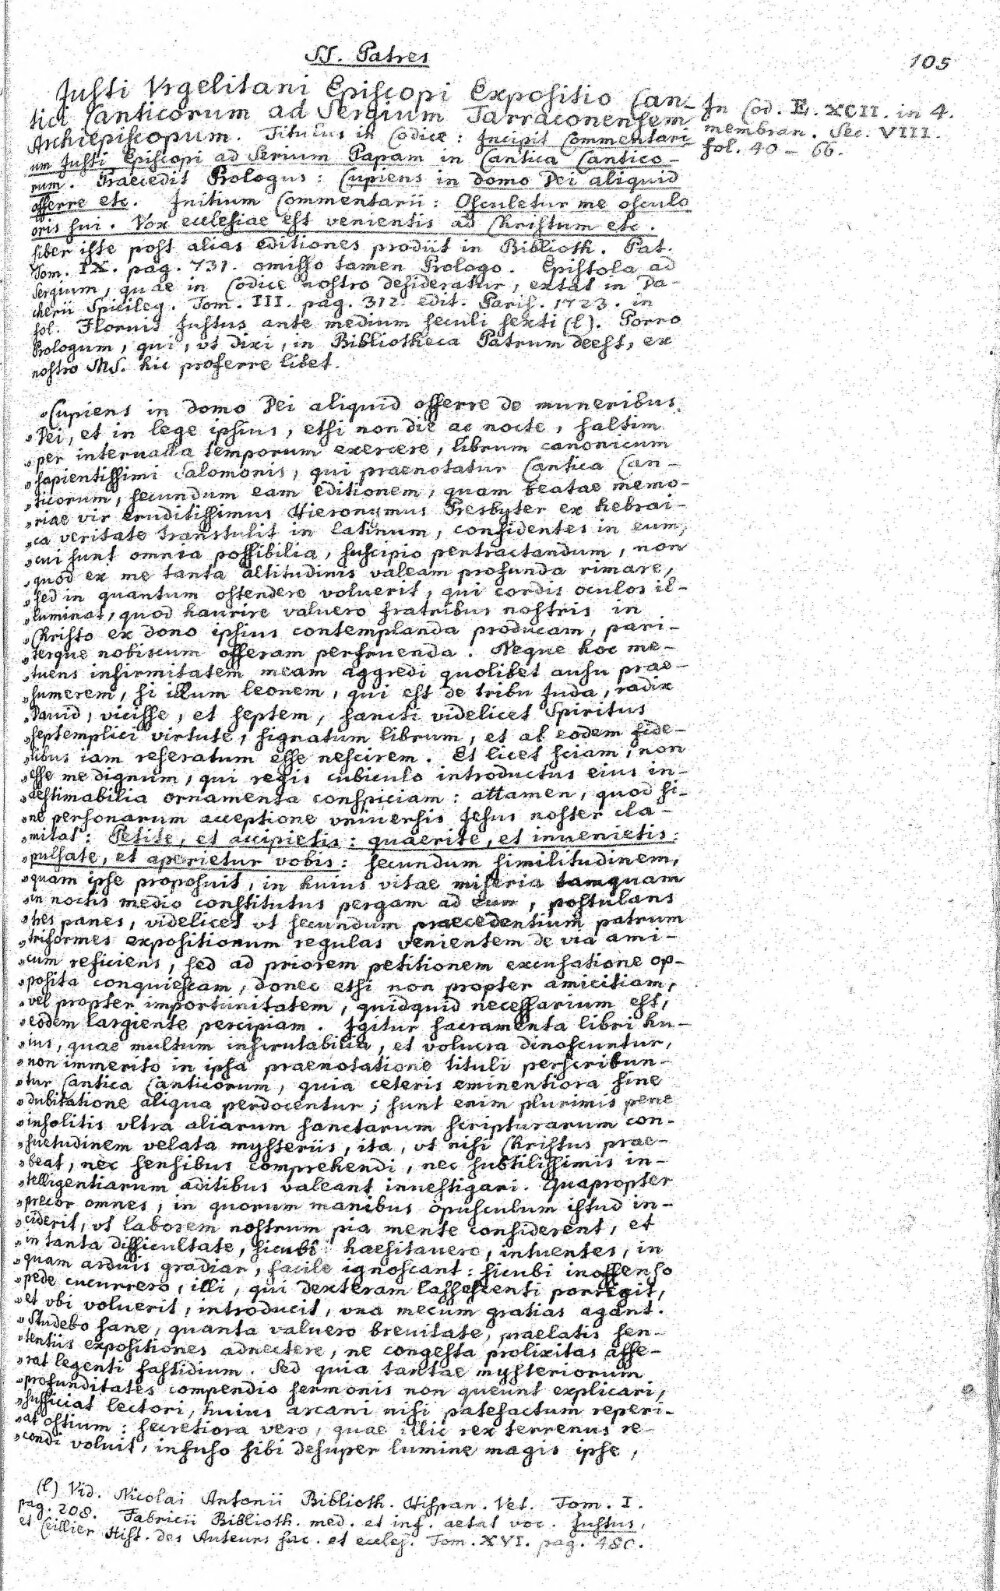 SS. Patres
105
Justi Vrgelitani Episcopi Expositio Can-
tici Canticorum ad Sergium Tarraconensem
Archiepiscopum. Titulus in Codice: Incipit Commentari
um Justi Episcopi ad Serium Papam in Cantica Cantico-
rum. Praecedit Prologus: Cupiens in domo Dei aliquid
offerre etc. Initium Commentarii: Osculetur me osculo
oris sui. Vox ecclesiae est venientis ad Christum etc.
Liber iste post alias editiones prodiit in Biblioth. Pat.
Tom. IX. pag. 731. omisso tamen Prologo. Epistola ad
Sergium, quae in Codice nostro desideratur, extat in Da-
cherii Spicileg. Tom. III. pag. 312. edit. Paris. 1723. in
fol. Floruit Justus ante medium seculi sexti (l). Porro
Prologum, qui, vt dixi, in Bibliotheca Patrum deest, ex
nostro MS. hic proferre libet.
In Cod. E. XCII. in 4.
membran. Sec. VIII.
fol. 40 - 66.
»Cupiens in domo Dei aliquid offerre de muneribus
»Dei, et in lege ipsius, etsi non die ac nocte, saltim
»per interualla temporum exercere, librum canonicum
»sapientissimi Salomonis, qui praenotatur Cantica Can-
»ticorum, secundum eam editionem, quam beatae memo-
»riae vir eruditissimus Hieronymus Presbyter ex hebrai-
»ca veritate transtulit in latinum, considentes in eum,
»cui sunt omnia possibilia, suscipio pertractandum, non
»quod ex me tanta altitudinis valeam profunda rimare,
»sed in quantum ostendere voluerit, qui cordis oculos il-
»luminat, quod haurire valuero fratribus nostris in
»Christo ex dono ipsius contemplanda producam, pari-
»terque nobiscum offeram perfruenda. Neque hoc me-
»tuens infirmitatem meam aggredi quolibet ausu prae-
»sumerem, si illum leonem, qui est de tribu Juda, radix
»Dauid, vicisse, et septem, sancti videlicet Spiritus
»septemplici virtute, signatum librum, et ab eodem fide-
»libus iam reseratum esse nescirem. Et licet sciam, non
»esse me dignum, qui regis cubiculo introductus eius in-
»aestimabilia ornamenta conspiciam: attamen, quod si-
»ne personarum acceptione vniuersis Jesus noster cla-
»mitat: Petite, et accipietis: quaerite, et inuenietis:
»pulsate, et aperietur vobis: secundum similitudinem,
»quam ipse proposuit, in huius vitae miseria tamquam
»in noctis medio constitutus pergam ad eum, postulans
»tres panes, videlicet vt secundum praecedentium patrum
»triformes expositionum regulas venientem de via ami-
»cum reficiens, sed ad priorem petitionem excusatione op-
»posita conquiescam, donec etsi non propter amicitiam,
»vel propter importunitatem, quidquid necessarium est,
»eodem largiente percipiam. Igitur sacramenta libri hu-
»ius, quae multum inscrutabilia, et voluera dinoscuntur,
»non immerito in ipsa praenotatione tituli perscribun-
»tur Cantica Canticorum, quia ceteris eminentiora sine
»dubitatione aliqua perdocentur; sunt enim plurimis pene
»insolitis vltra aliarum sanctarum scripturarum con-
»suetudinem velata mysteriis, ita, vt nisi Christus prae-
»beat, nec sensibus comprehendi, nec subtilissimis in-
»telligentiarum aditibus valeant inuestigari. Quapropter
»precor omnes, in quorum manibus opusculum istud in-
»ciderit, vt laborem nostrum pia mente considerent, et
»in tanta difficultate, sicubi haesitauero, intuentes, in
»quam arduis gradiar, facile ignoscant: sicubi inoffenso
»pede cucurrero, illi, qui dexteram lassescenti porrigit,
»et vbi voluerit, introducit, vna mecum gratias agant.
»Studebo sane, quanta valuero breuitate, praelatis sen-
»tentiis expositiones adnectere, ne congesta prolixitas affe-
»rat legenti fastidium. Sed quia tantae mysteriorum
»profunditates compendio sermonis non queunt explicari,
»sufficiat lectori, huius arcani nisi patefactum reperi-
»at ostium: secretiora vero, quae illic rex terrenus re-
»condi voluit, infuso sibi desuper lumine magis ipse,
(l) Vid. Nicolai Antonii Biblioth. Hispan. Vet. Tom. I.
pag. 208. Fabricii Biblioth. med. et inf. aetat voc. Justus,
et Ceillier Hist. des Auteurs sac. et eccles. Tom. XVI. pag. 480.